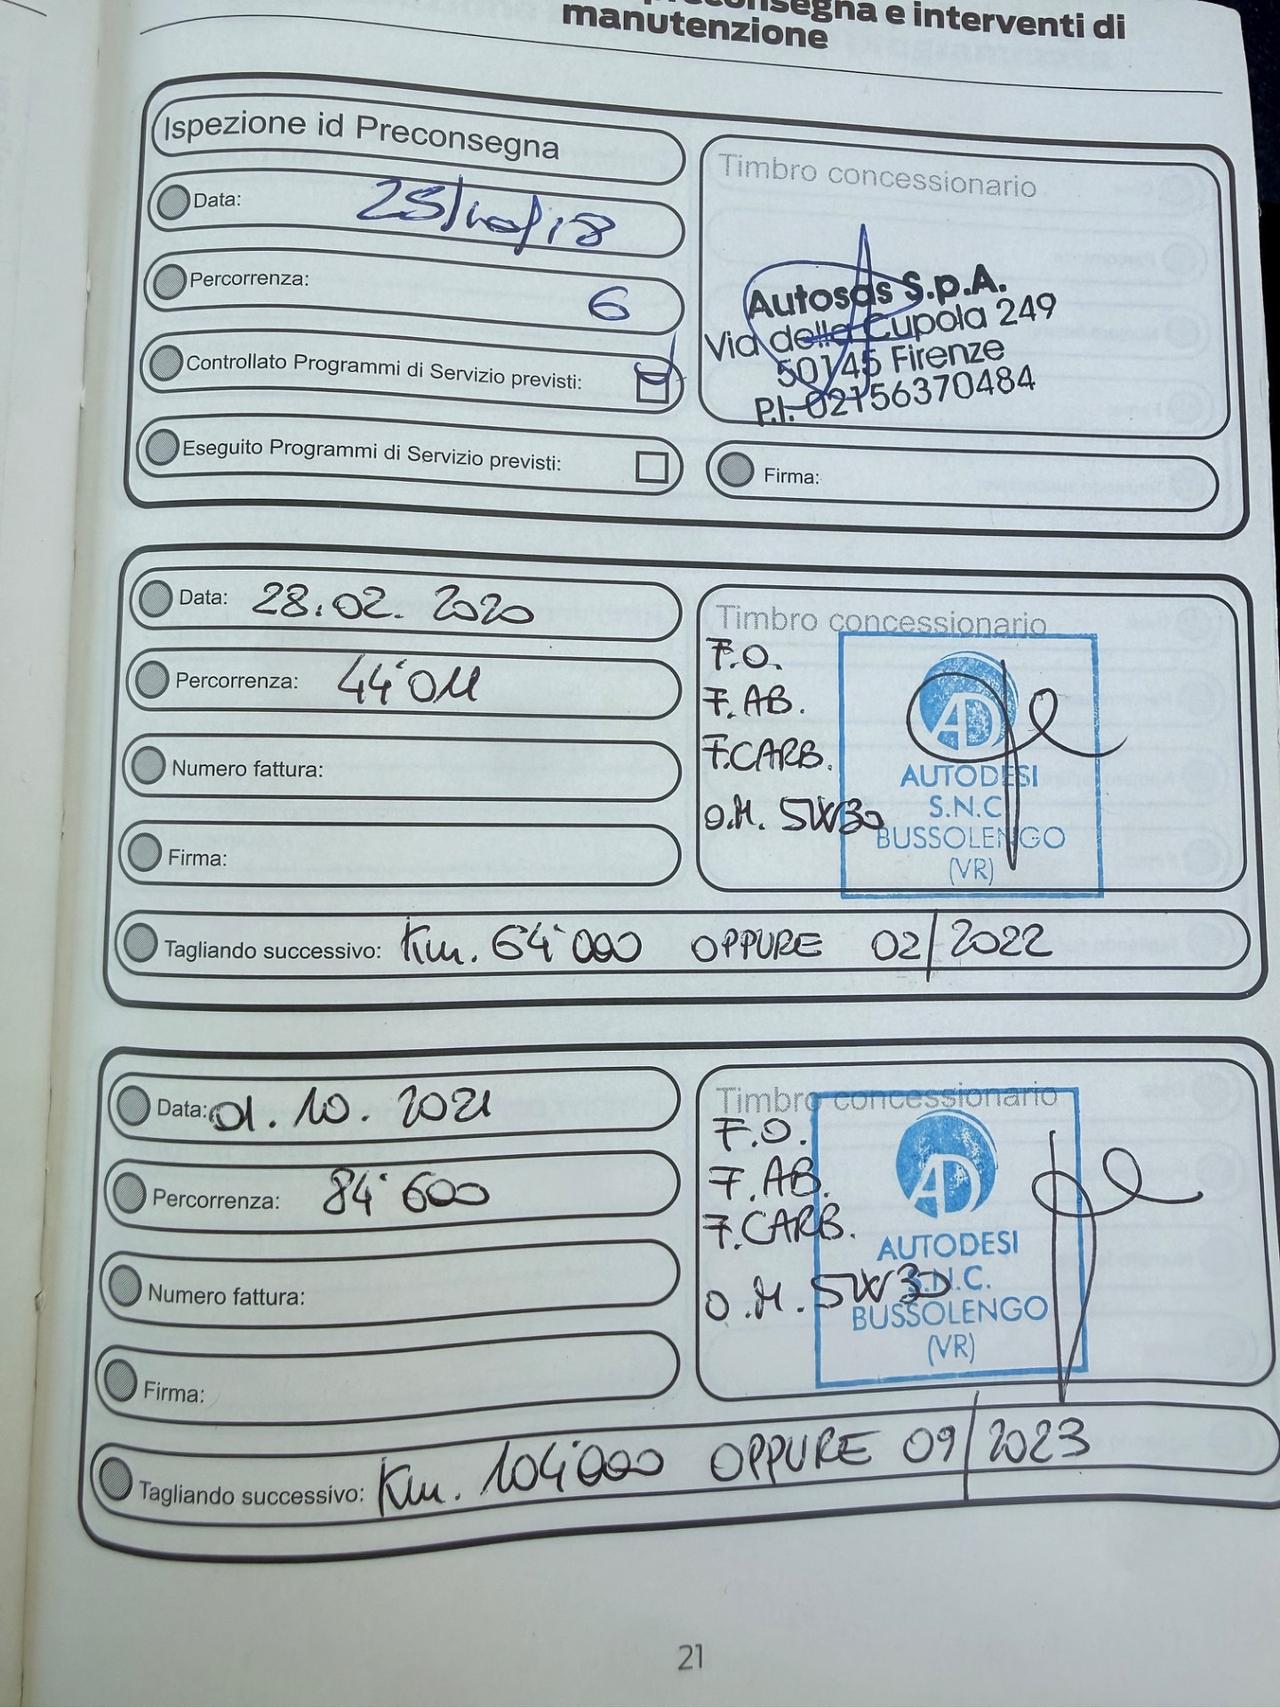 preconsegna e interventi di
manutenzione
Ispezione id Preconsegna
Data: 25/10/18
Percorrenza: 6
Controllato Programmi di Servizio previsti:
Eseguito Programmi di Servizio previsti:
Timbro concessionario
Autosas S.p.A.
Via della Cupola 249
50145 Firenze
P.I. 02156370484
Firma:
Data: 28.02.2020
Percorrenza: 44'011
Numero fattura:
Firma:
Timbro concessionario
F.O.
F.AB.
F.CARB.
O.M. 5W30
AD
AUTODESI
S.N.C.
BUSSOLENGO
(VR)
Tagliando successivo: Km. 64'000 OPPURE 02/2022
Data: 01.10.2021
Percorrenza: 84'600
Numero fattura:
Firma:
Timbro concessionario
F.O.
F.AB.
F.CARB.
O.M. 5W30
AD
AUTODESI
S.N.C.
BUSSOLENGO
(VR)
Tagliando successivo: Km. 104'000 OPPURE 09/2023
21